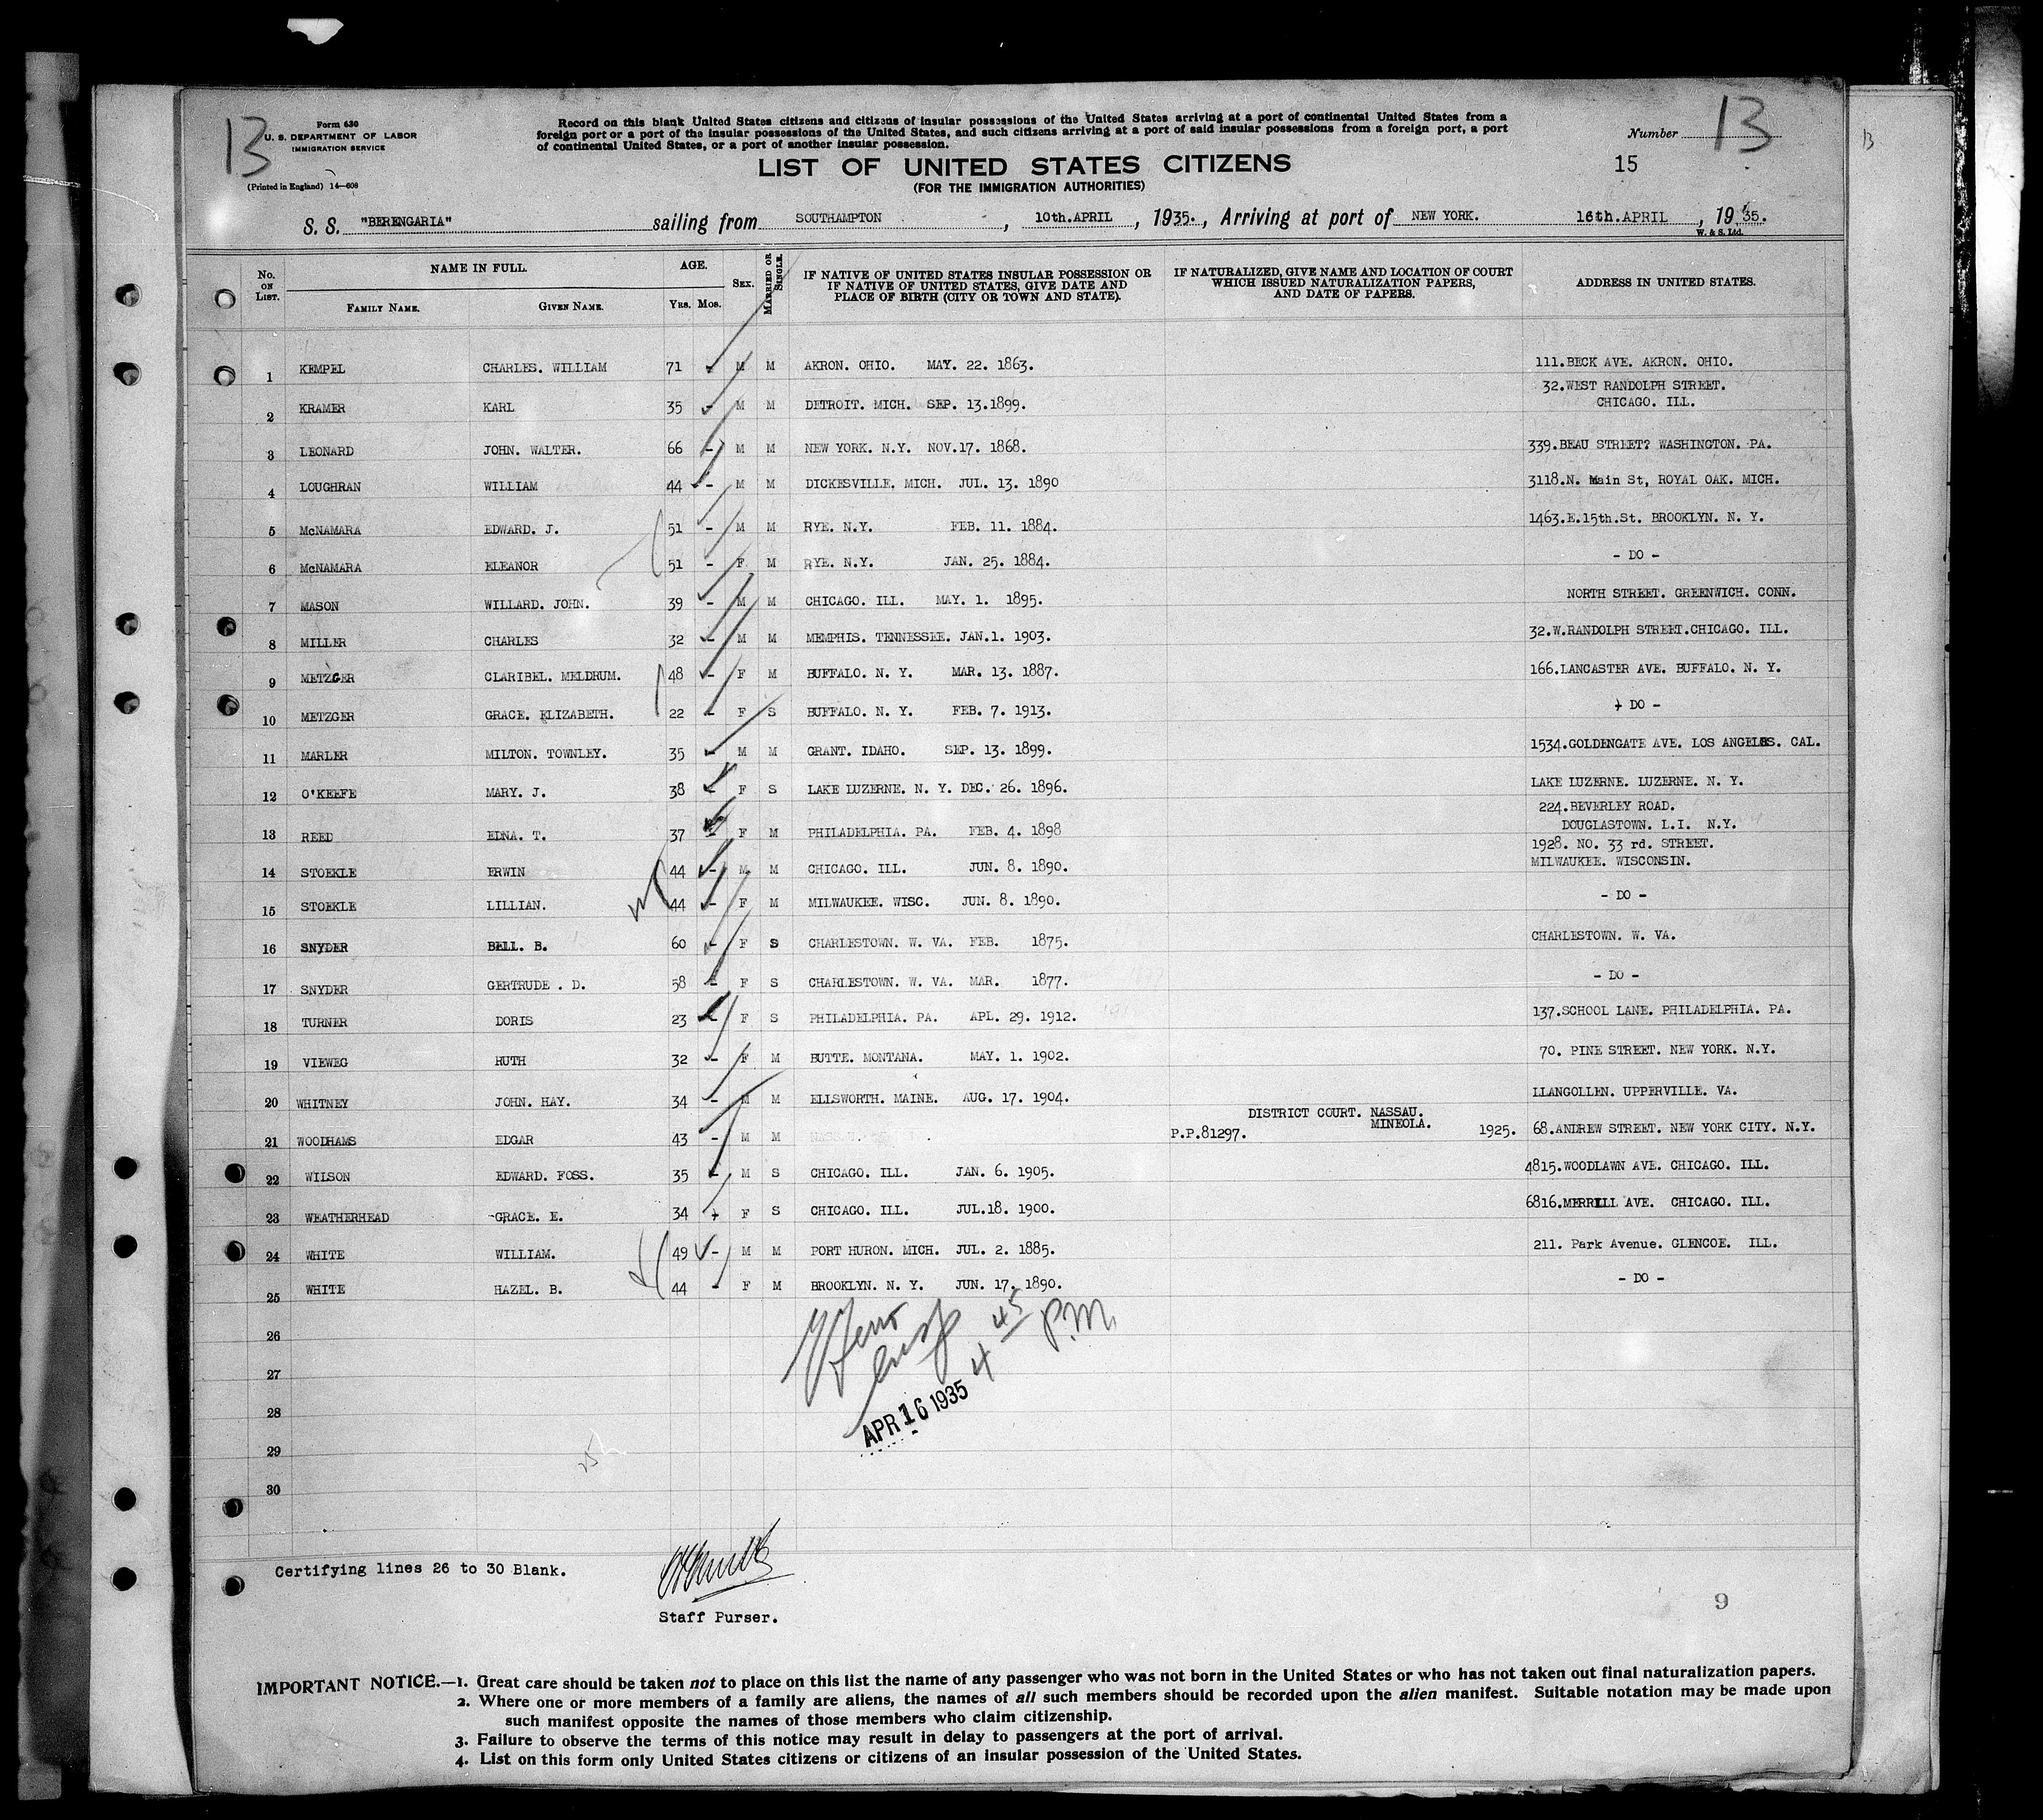 13
Form 630
U. S. DEPARTMENT OF LABOR
IMMIGRATION SERVICE
(Printed in England) 14—608
Record on this blank United States citizens and citizens of insular possessions of the United States arriving at a port of continental United States from a
foreign port or a port of the insular possessions of the United States, and such citizens arriving at a port of said insular possessions from a foreign port, a port
of continental United States, or a port of another insular possession.
Number 13
13
LIST OF UNITED STATES CITIZENS
15
(FOR THE IMMIGRATION AUTHORITIES)
S. S. "BERENGARIA" sailing from SOUTHAMPTON , 10th.APRIL , 1935. , Arriving at port of NEW YORK. 16th.APRIL , 1935.
W. & S. Ltd.
No. ON LIST. NAME IN FULL. AGE. SEX. MARRIED OR SINGLE. IF NATIVE OF UNITED STATES INSULAR POSSESSION OR IF NATIVE OF UNITED STATES, GIVE DATE AND PLACE OF BIRTH (CITY OR TOWN AND STATE). IF NATURALIZED, GIVE NAME AND LOCATION OF COURT WHICH ISSUED NATURALIZATION PAPERS, AND DATE OF PAPERS. ADDRESS IN UNITED STATES.
FAMILY NAME. GIVEN NAME. YRS. MOS.
1 KEMPEL CHARLES. WILLIAM 71 M M AKRON. OHIO. MAY. 22. 1863. 111.BECK AVE. AKRON. OHIO.
2 KRAMER KARL 35 - M M DETROIT. MICH. SEP. 13.1899. 32.WEST RANDOLPH STREET.
CHICAGO. ILL.
3 LEONARD JOHN. WALTER. 66 - M M NEW YORK. N.Y. NOV.17. 1868. 339.BEAU STREET? WASHINGTON. PA.
4 LOUGHRAN WILLIAM 44 - M M DICKESVILLE. MICH. JUL. 13. 1890 3118.N. Main St, ROYAL OAK. MICH.
5 McNAMARA EDWARD. J. 51 - M M RYE. N.Y. FEB. 11. 1884. 1463.E.15th.St. BROOKLYN. N. Y.
6 McNAMARA ELEANOR 51 - F M RYE. N.Y. JAN. 25. 1884. - DO -
7 MASON WILLARD. JOHN. 39 - M M CHICAGO. ILL. MAY. 1. 1895. NORTH STREET. GREENWICH. CONN.
8 MILLER CHARLES 32 - M M MEMPHIS. TENNESSEE. JAN.1. 1903. 32.W.RANDOLPH STREET.CHICAGO. ILL.
9 METZGER CLARIBEL. MELDRUM. 48 - F M BUFFALO. N. Y. MAR. 13. 1887. 166.LANCASTER AVE. BUFFALO. N. Y.
10 METZGER GRACE. ELIZABETH. 22 - F S BUFFALO. N. Y. FEB. 7. 1913. - DO -
11 MARLER MILTON. TOWNLEY. 35 - M M GRANT. IDAHO. SEP. 13. 1899. 1534.GOLDENGATE AVE. LOS ANGELES. CAL.
12 O'KEEFE MARY. J. 38 - F S LAKE LUZERNE. N. Y. DEC. 26. 1896. LAKE LUZERNE. LUZERNE. N. Y.
13 REED EDNA. T. 37 - F M PHILADELPHIA. PA. FEB. 4. 1898 224.BEVERLEY ROAD.
DOUGLASTOWN. L.I. N.Y.
14 STOEKLE ERWIN 44 - M M CHICAGO. ILL. JUN. 8. 1890. 1928. NO. 33 rd. STREET.
MILWAUKEE. WISCONSIN.
15 STOEKLE LILLIAN. 44 - F M MILWAUKEE. WISC. JUN. 8. 1890. - DO -
16 SNYDER BELL. B. 60 - F S CHARLESTOWN. W. VA. FEB. 1875. CHARLESTOWN. W. VA.
17 SNYDER GERTRUDE . D. 58 - F S CHARLESTOWN. W. VA. MAR. 1877. - DO -
18 TURNER DORIS 23 - F S PHILADELPHIA. PA. APL. 29. 1912. 137.SCHOOL LANE. PHILADELPHIA. PA.
19 VIEWEG RUTH 32 - F M BUTTE. MONTANA. MAY. 1. 1902. 70. PINE STREET. NEW YORK. N.Y.
20 WHITNEY JOHN. HAY. 34 - M M ELLSWORTH. MAINE. AUG. 17. 1904. LLANGOLLEN. UPPERVILLE. VA.
21 WOODHAMS EDGAR 43 - M M DISTRICT COURT. NASSAU.
MINEOLA.
P.P.81297. 1925. 68.ANDREW STREET. NEW YORK CITY. N.Y.
22 WILSON EDWARD. FOSS. 35 - M S CHICAGO. ILL. JAN. 6. 1905. 4815.WOODLAWN AVE. CHICAGO. ILL.
23 WEATHERHEAD GRACE. E. 34 - F S CHICAGO. ILL. JUL.18. 1900. 6816.MERRILL AVE. CHICAGO. ILL.
24 WHITE WILLIAM. 49 - M M PORT HURON. MICH. JUL. 2. 1885. 211. Park Avenue. GLENCOE. ILL.
25 WHITE HAZEL. B. 44 - F M BROOKLYN. N. Y. JUN. 17. 1890. - DO -
26
4 45 P.M.
27
28
APR 16 1935
29
30
Certifying lines 26 to 30 Blank.
Staff Purser.
9
IMPORTANT NOTICE.—1. Great care should be taken not to place on this list the name of any passenger who was not born in the United States or who has not taken out final naturalization papers.
2. Where one or more members of a family are aliens, the names of all such members should be recorded upon the alien manifest. Suitable notation may be made upon
such manifest opposite the names of those members who claim citizenship.
3. Failure to observe the terms of this notice may result in delay to passengers at the port of arrival.
4. List on this form only United States citizens or citizens of an insular possession of the United States.